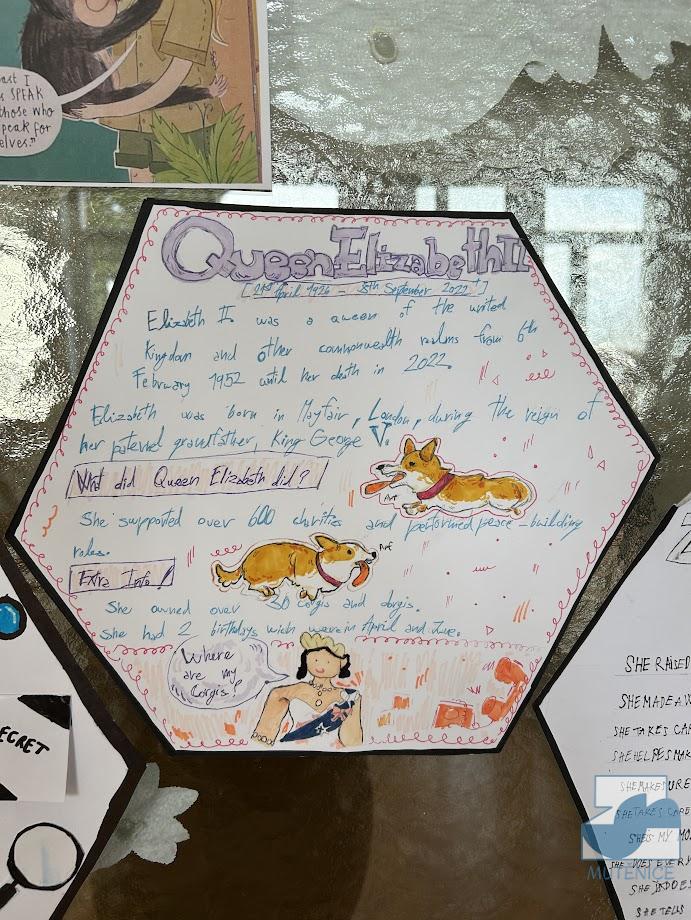 ast I
s SPEAK
those who
peak for
elves."
Queen Elizabeth II
[21st April 1926 - 8th September 2022 †]
Elizabeth II was a aween of the united
Kingdom and other commonwealth realms from 6th
February 1952 until her death in 2022.
Elizabeth was born in Mayfair, London, during the reign of
her paternal grandfather, King George V.
What did Queen Elizabeth did?
She supported over 600 charities and performed peace-building
roles.
Arf
Arf
Extra Info!
She owned over 30 corgis and dorgis.
She had 2 birthdays wich were in April and June.
Where
are my
Corgis?
ECRET
SHE RAISED
SHE MADE A
SHE TAKES CAR
SHE HELPES MAK
SHE MAKES URE
SHE TAKES CARE
SHE'S MY MO
SHE DOES EVERY
SHE DOES
SHE TELLS
MUTENICE